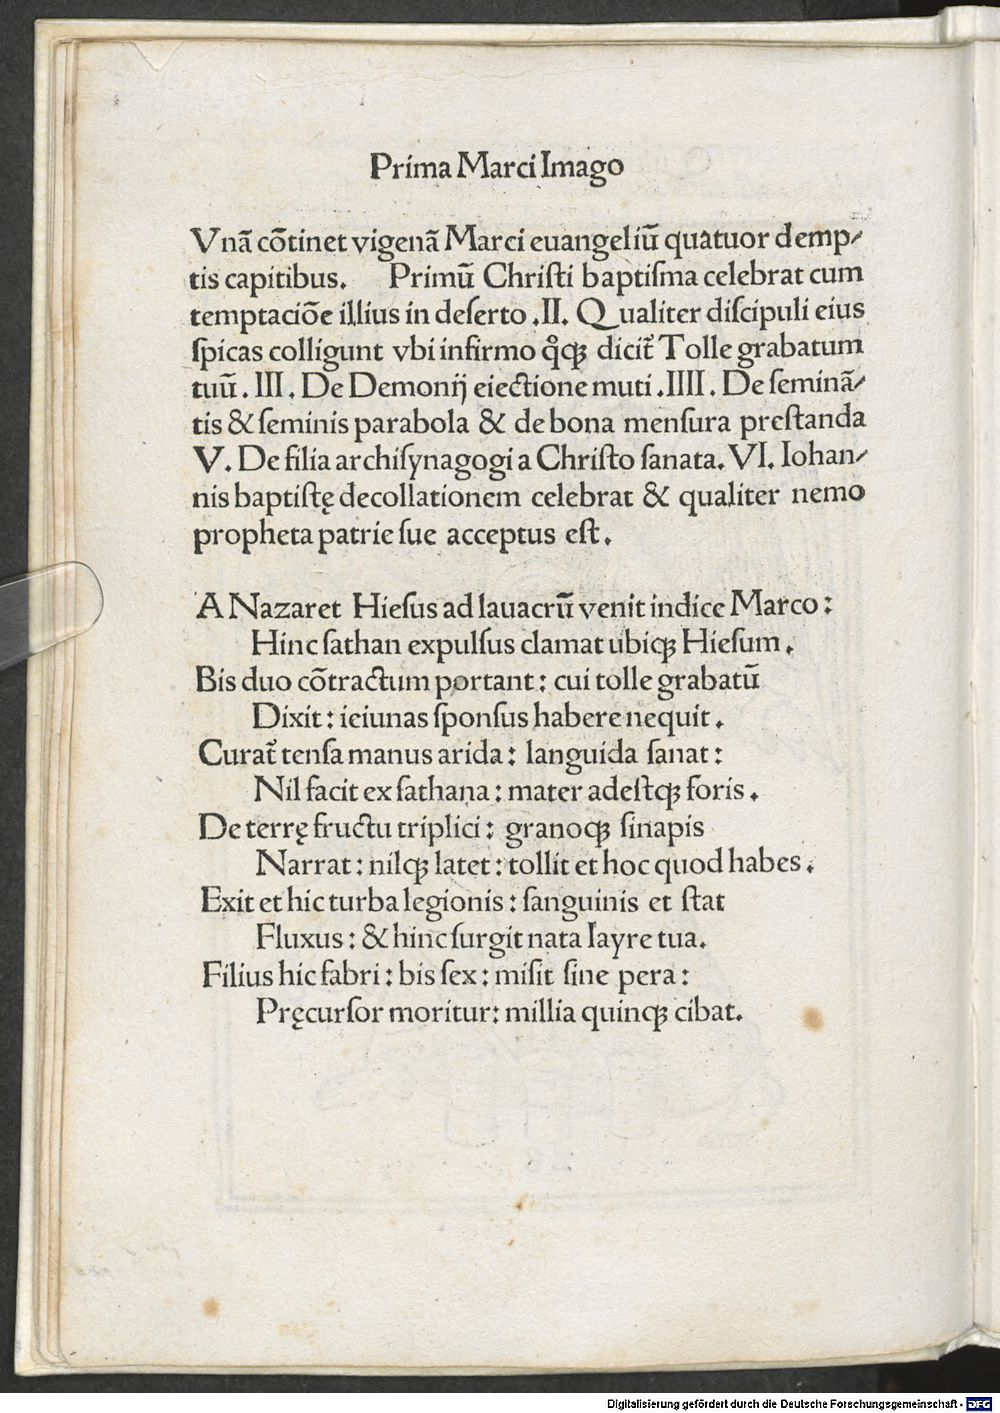 Prima Marci Imago
Vnā cōtinet vigenā Marci euangeliū quatuor demp⸗
tis capitibus. Primū Chriſti baptiſma celebrat cum
temptaciōe illius in deſerto .II. Qualiter diſcipuli eius
ſpicas colligunt vbi infirmo qͦqꝫ dicit᷑ Tolle grabatum
tuū . III . De Demonij eiectione muti .IIII. De ſeminā⸗
tis & ſeminis parabola & de bona menſura preſtanda
V. De filia archiſynagogi a Chriſto ſanata. VI. Iohan⸗
nis baptiſtę decollationem celebrat & qualiter nemo
propheta patrie ſue acceptus eſt.
A Nazaret Hieſus ad lauacrū venit indice Marco :
Hinc ſathan expulſus clamat ubiqꝫ Hieſum .
Bis duo cōtractum portant : cui tolle grabatū
Dixit : ieiunas ſponſus habere nequit .
Curat᷑ tenſa manus arida : languida ſanat :
Nil facit ex ſathana : mater adeſtqꝫ foris .
De terrę fructu triplici : granoqꝫ ſinapis
Narrat : nilqꝫ latet : tollit et hoc quod habes .
Exit et hic turba legionis : ſanguinis et ſtat
Fluxus : & hinc ſurgit nata Iayre tua.
Filius hic fabri : bis ſex : miſit ſine pera :
Pręcurſor moritur: millia quinqꝫ cibat.
Digitalisierung gefördert durch die Deutsche Forschungsgemeinschaft - DFG